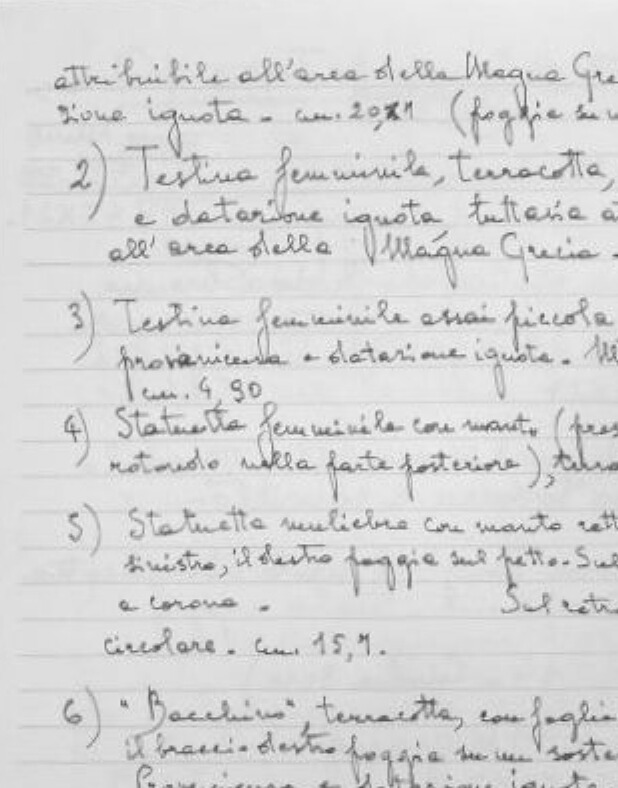 attribuibile all'area della Magna Gre
zione ignota - cm. 20,1 (poggia su
2) Testina femminile, terracotta,
e datazione ignota tuttavia a
all'area della Magna Grecia -
3) Testina femminile assai piccola
provenienza e datazione ignota - M
cm. 4,90
4) Statuetta femminile con manto (pres
rotondo nella parte posteriore), terra
5) Statuetta muliebre con manto rett
sinistro, il destro poggia sul petto - Sul
a corona - Sul retro
circolare - cm. 15,7.
6) "Bacchino", terracotta, con foglia
il braccio destro poggia su un soste
Provenienza e datazione ignota